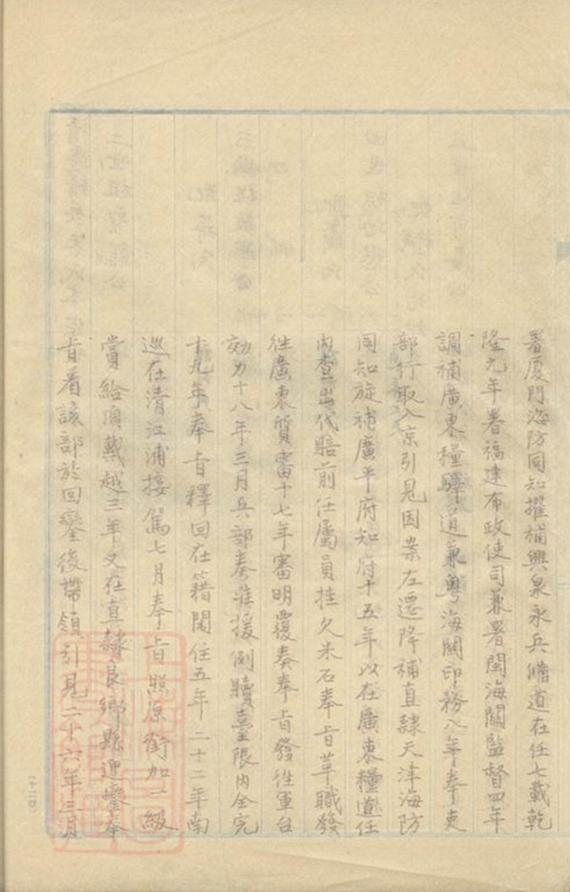 署厦門海防同知擢補興泉永兵備道在任七載乾
隆元年署福建布政使司兼署閩海關監督四年
調補廣東糧驛道兼粵海關印務八年奉吏
部行取入京引見因案左遷降補直隸天津海防
同知旋補廣平府知府十五年以在廣東糧道任
內查出代賠前任屬員挂欠米石奉旨革職發
往廣東質審十七年審明覆奏奉旨發往軍台
効力十八年三月兵部奏准援例贖臺限內全完
十九年奉旨釋回在籍閑住五年二十二年南
巡在清江浦接駕七月奉旨照原銜加一級
賞給頂戴越三年又在直隸良鄉縣迎鑾奉
旨着該部於回鑾後帶領引見二十六年三月